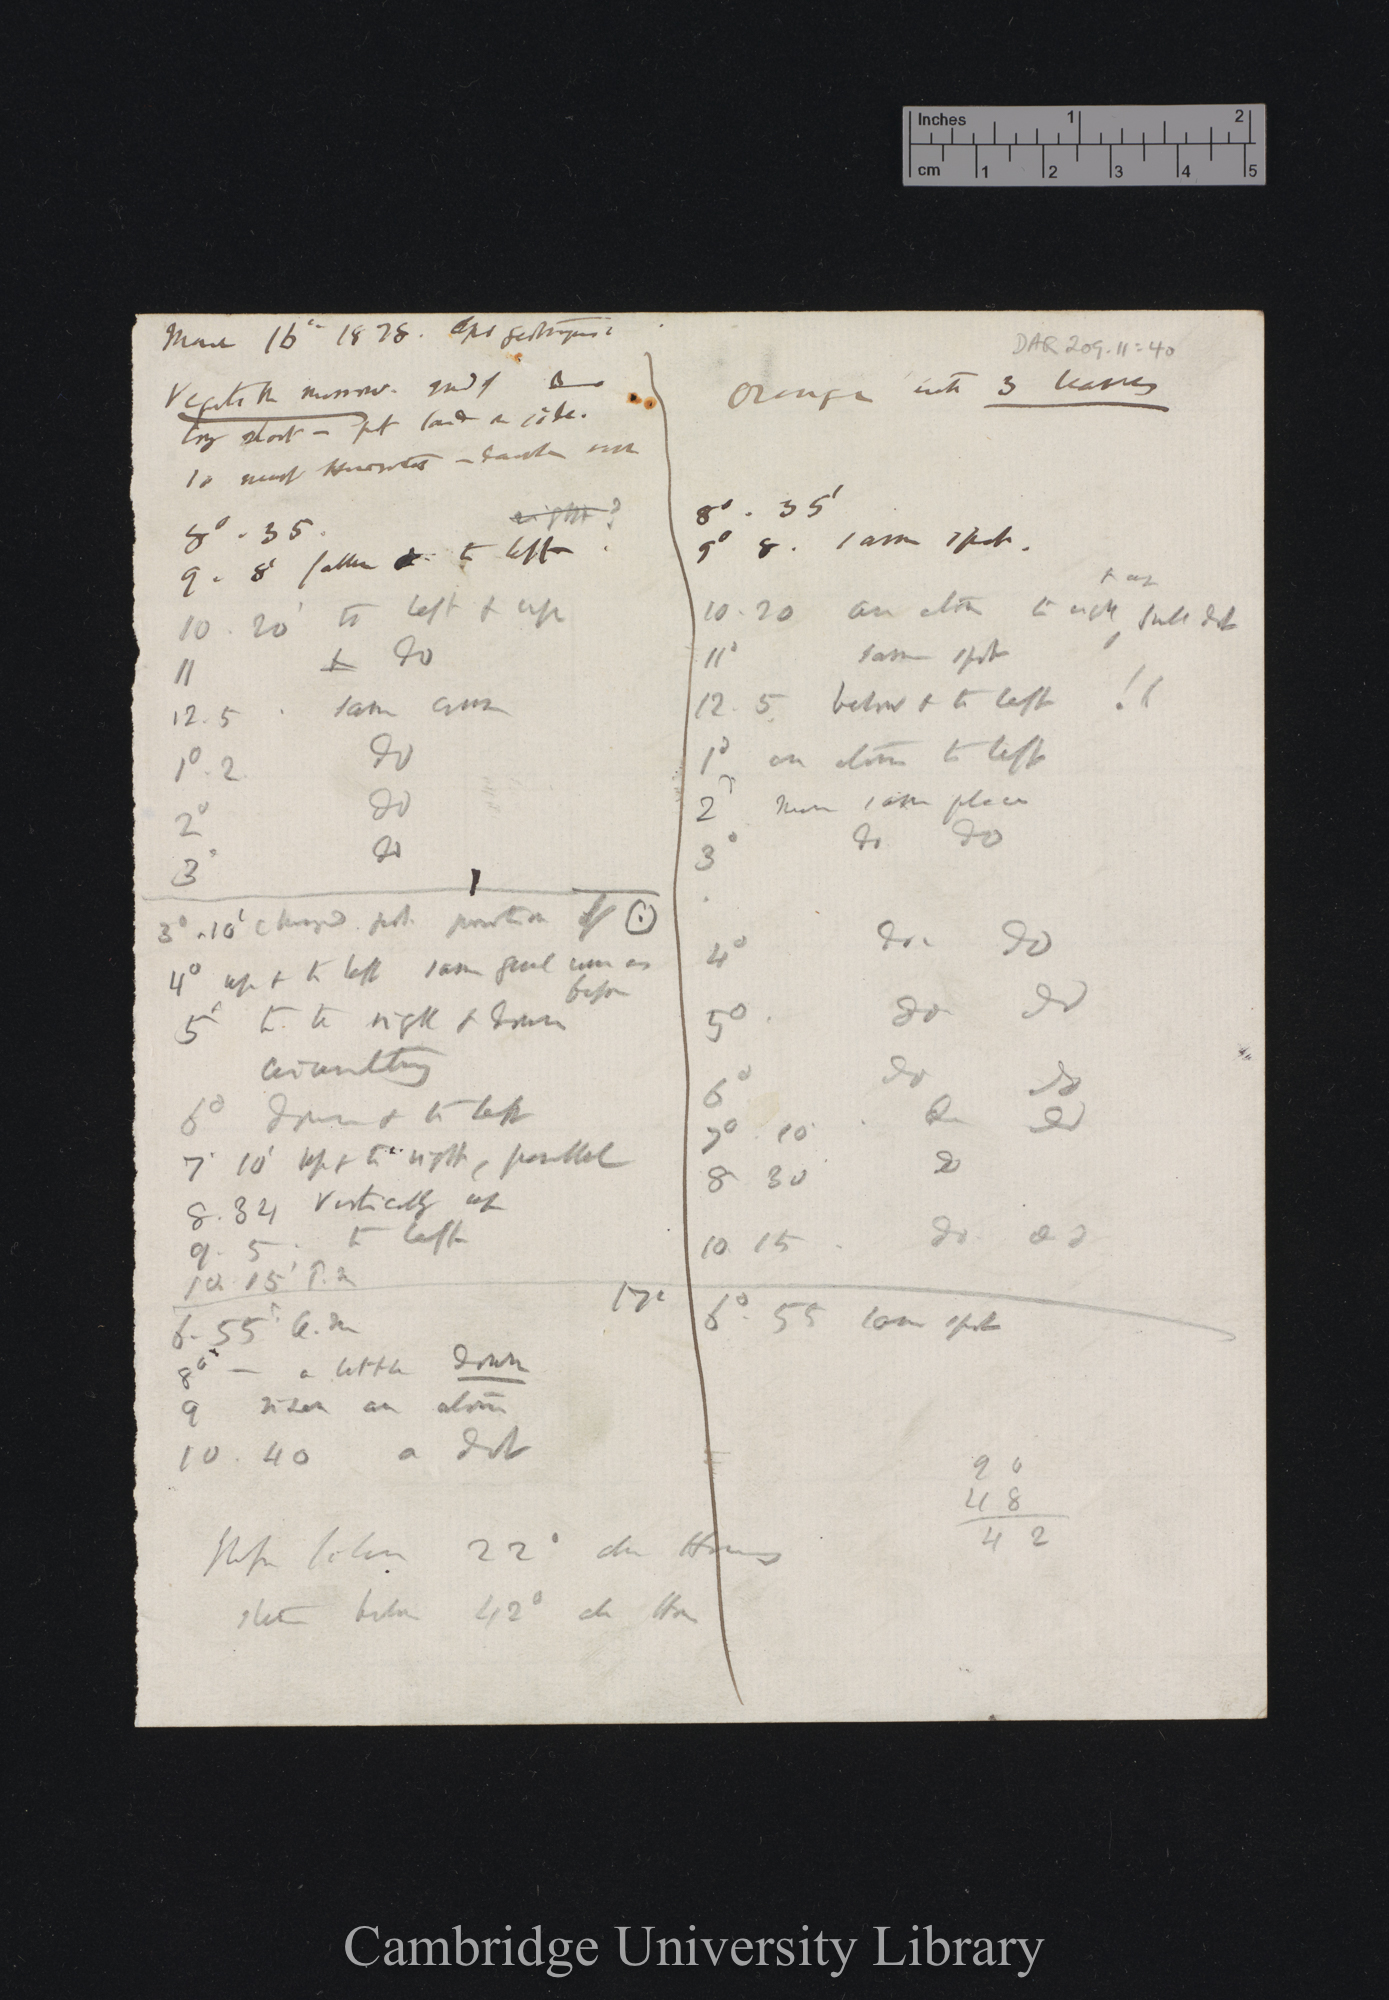 Inches 1 2
cm 1 2 3 4 5
DAR 209.11:40
March 16th 1878. Apogeotropism
Vegetable marrow. end of
long shoot – pot laid on side.
to
8° . 35.
right ?
9 . 8' fallen to left
10 . 20' to left & up
11 & do
12 . 5 . same course
1° . 2 do
2° do
3° do
3° . 10' changed pot. position of
4° up & to left same general course as
before
5° to right & down
circumnutating
6° down & to left
7 10' up & to right, parallel
8 . 34 vertically up
9 . 5 . to left
10 . 15' P.m
6 . 55' a.m
8° — a little down
9 risen an atom
10 . 40 a dot
22° above Horizon
below 42° above Hor
Orange with 3 leaves
8° . 35'
9° 8 . same spot.
& up
10 . 20 an atom to right, dot
11° same spot
12 . 5 below & to left !!
1° an atom to left
2° same place
3° do do
4° do. do
5° . do do
6° do do
7° . 10' . do do
8 30 do
10 15 . do do
17th 6° . 55 same spot
90
48
42
Cambridge University Library